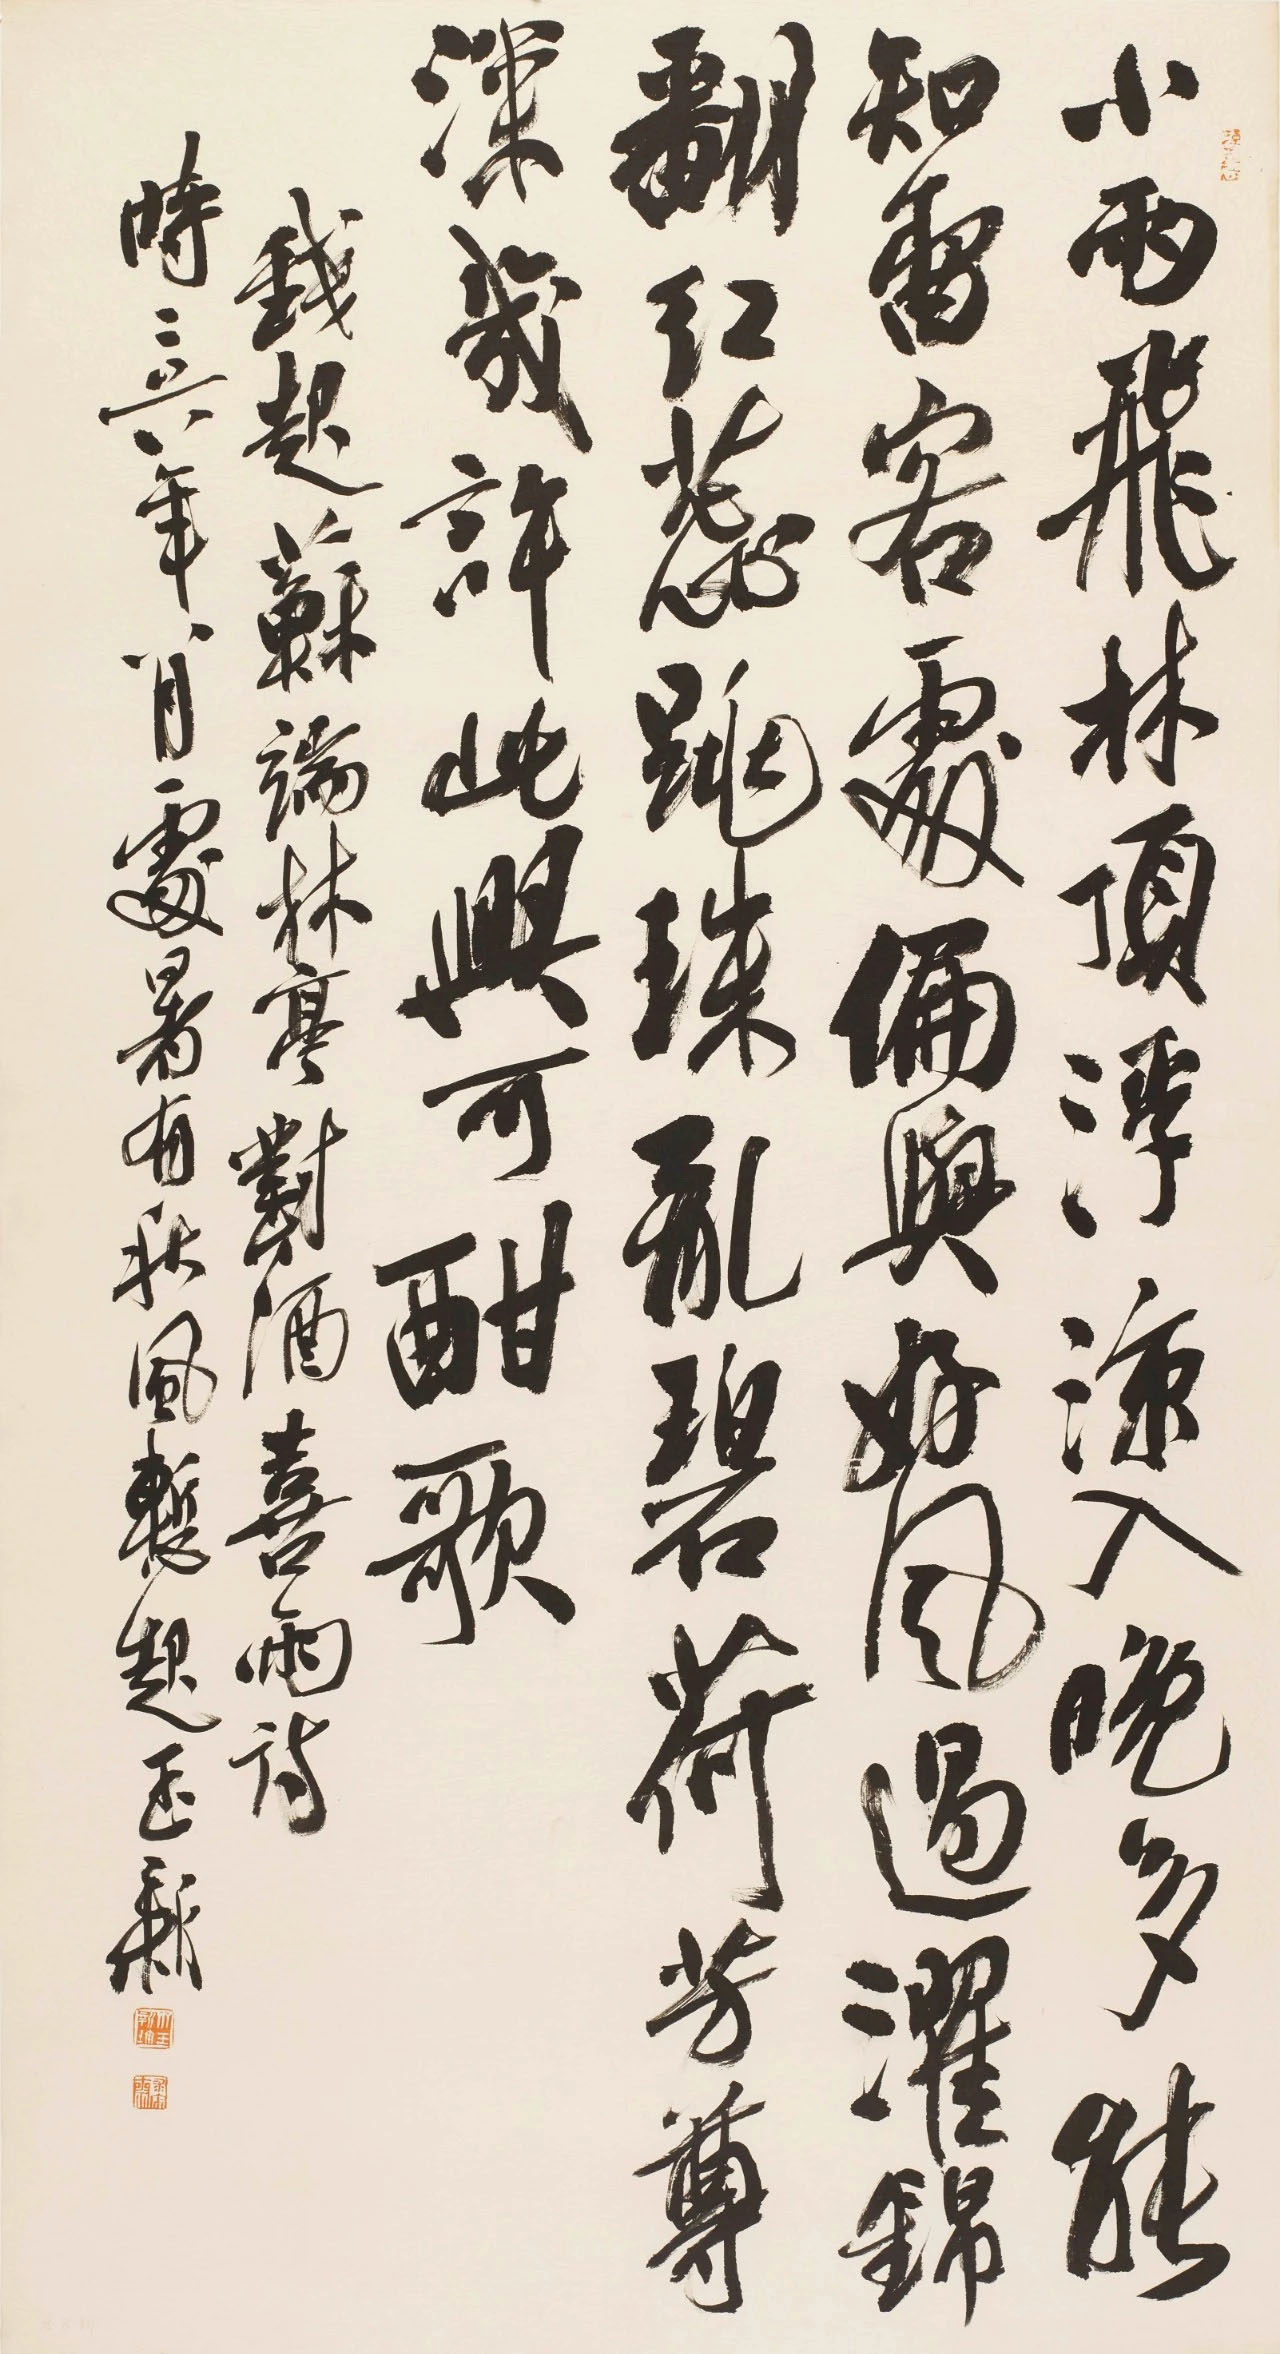 小雨飛林頂浮涼入晚多能
知留客處偏與好風過濯錦
翻紅蕊跳珠亂碧荷芳尊
深幾許此興可酣歌
錢起蘇端林亭對酒喜雨詩
時二〇一六年八月處暑有秋風暫起